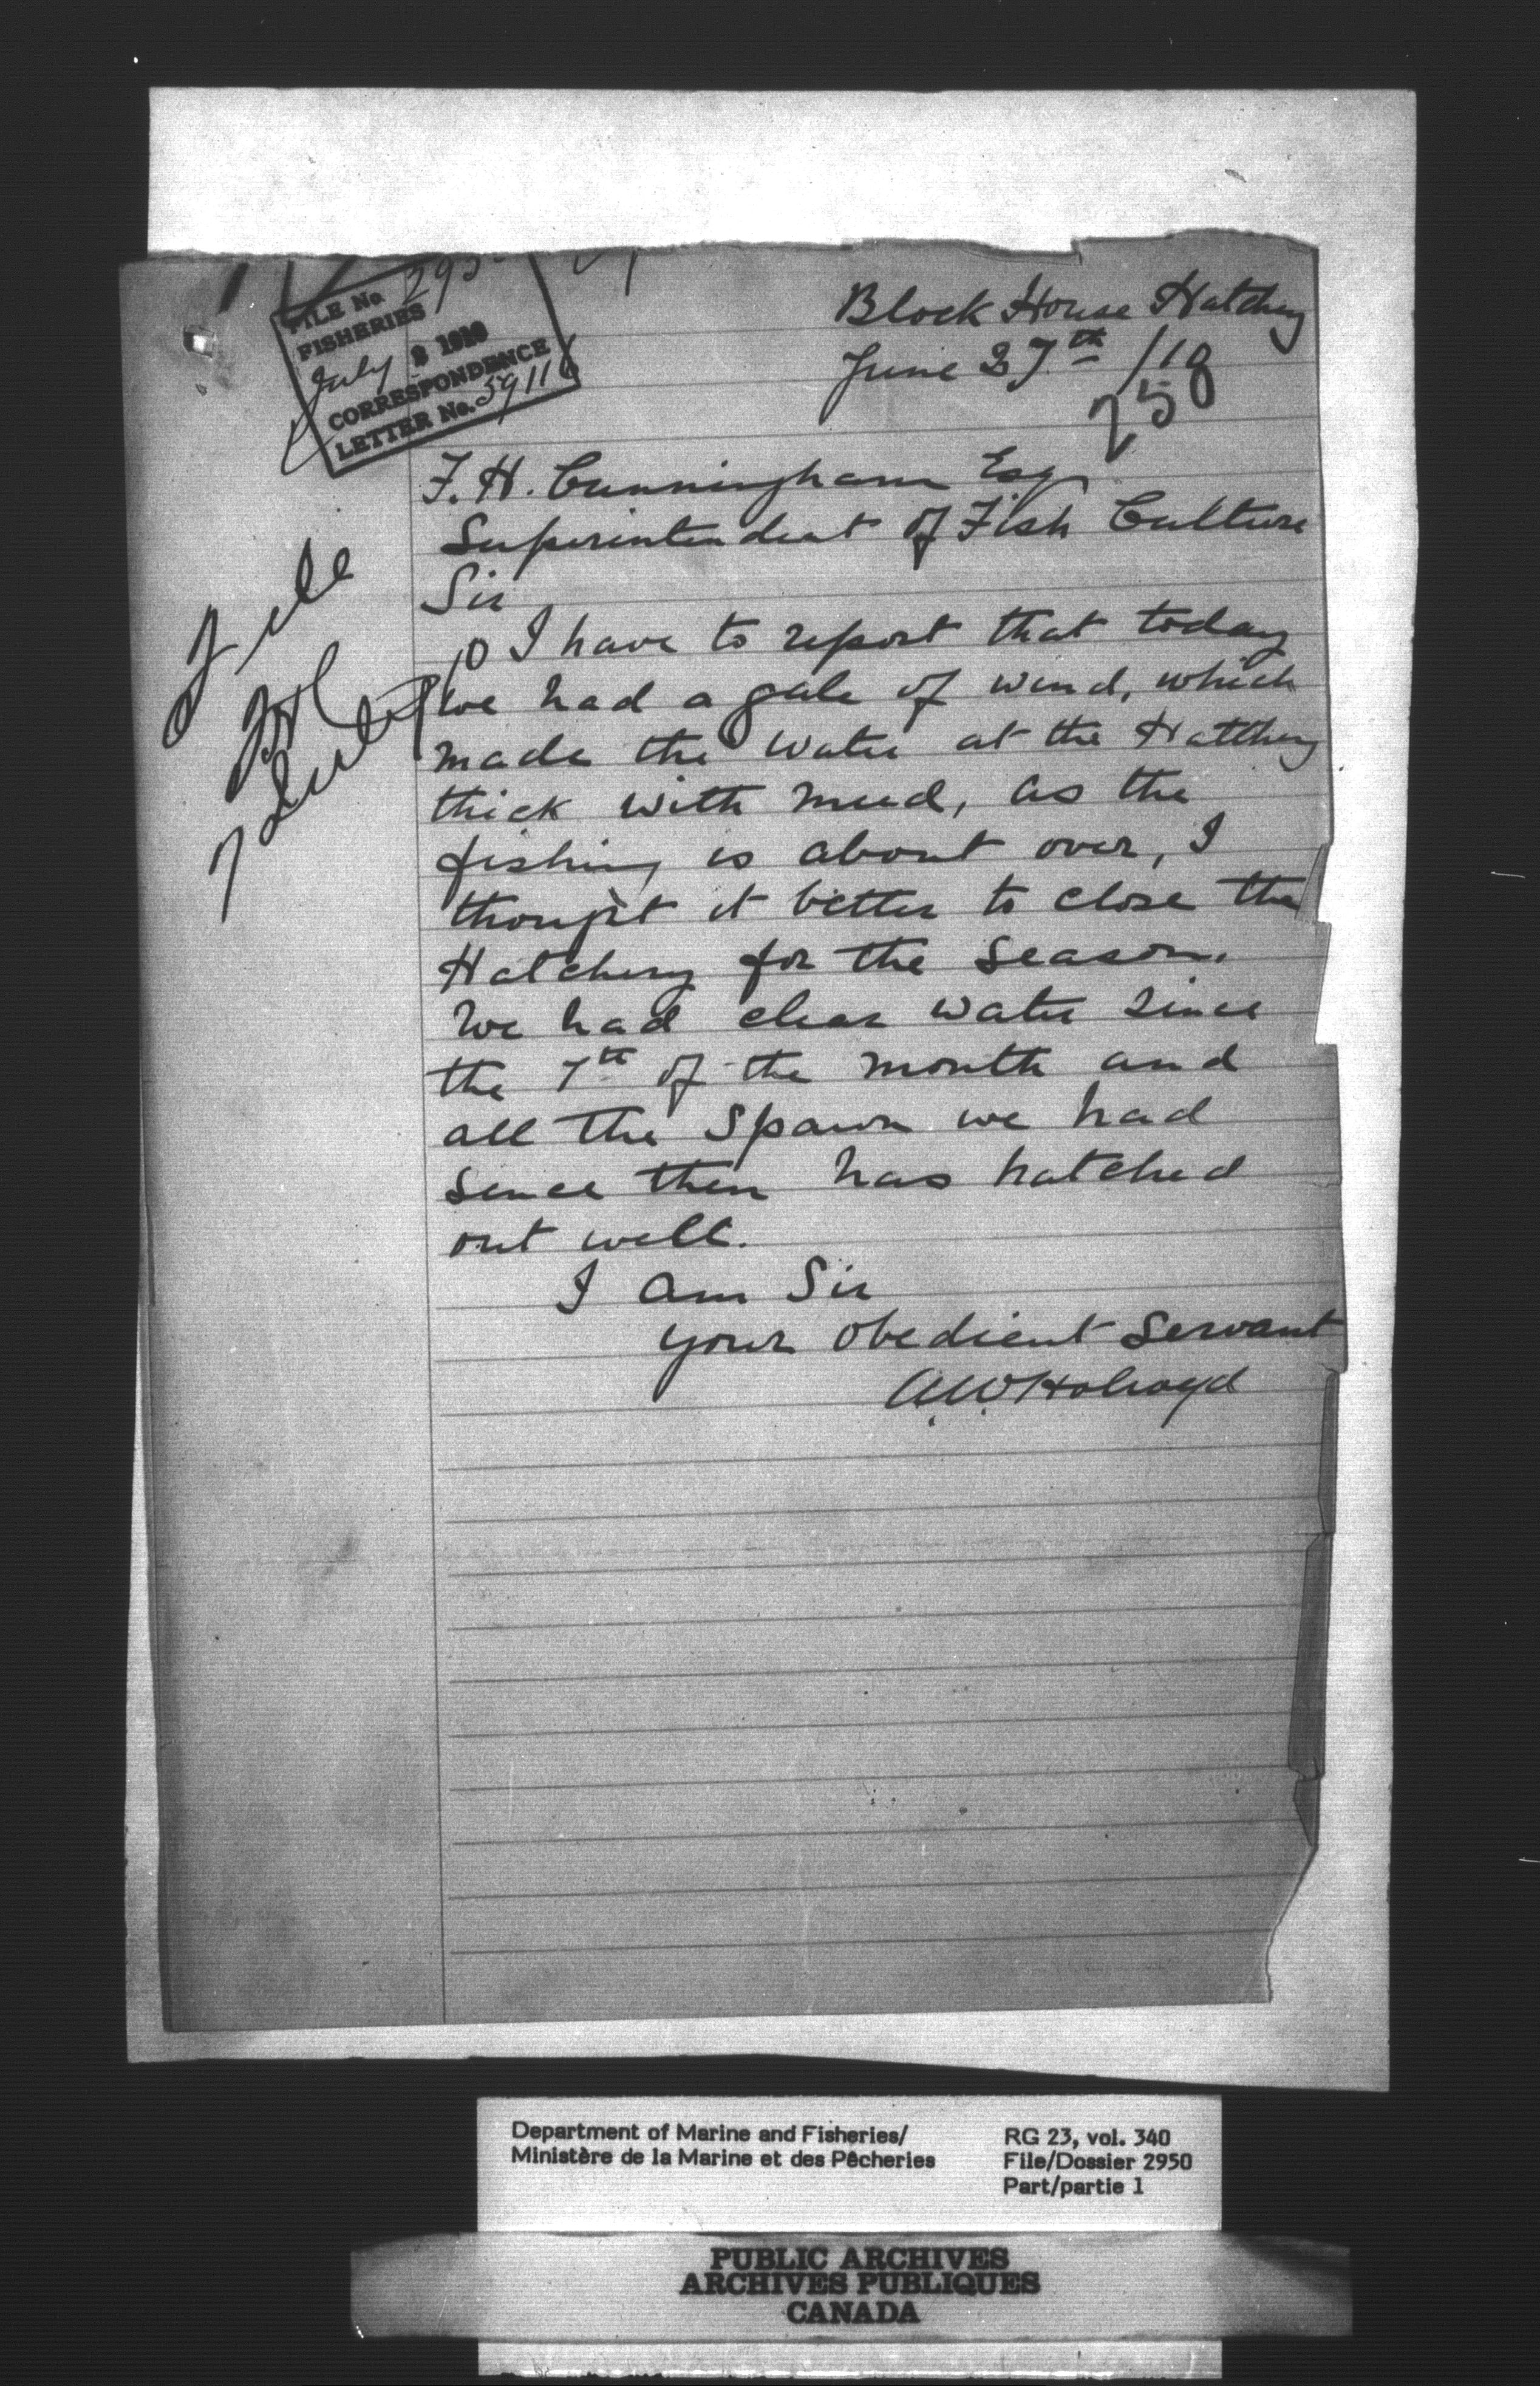 295
FILE No
FISHERIES
July 2 1910
CORRESPONDENCE
LETTER No. 59116
Block House Hatchery
June 27th /10
258
F. H. Cunningham Esq
Superintendent of Fish Culture
Sir
I have to report that today
we had a gale of wind, which
made the water at the Hatchery
thick with mud, as the
fishing is about over, I
thought it better to close the
Hatchery for the Season.
We had clear water since
the 7th of the month and
all the Spawn we had
since then has hatched
out well.
I am Sir
your obedient Servant
A.W. Holroyd
File
Department of Marine and Fisheries/
Ministère de la Marine et des Pêcheries
RG 23, vol. 340
File/Dossier 2950
Part/partie 1
PUBLIC ARCHIVES
ARCHIVES PUBLIQUES
CANADA